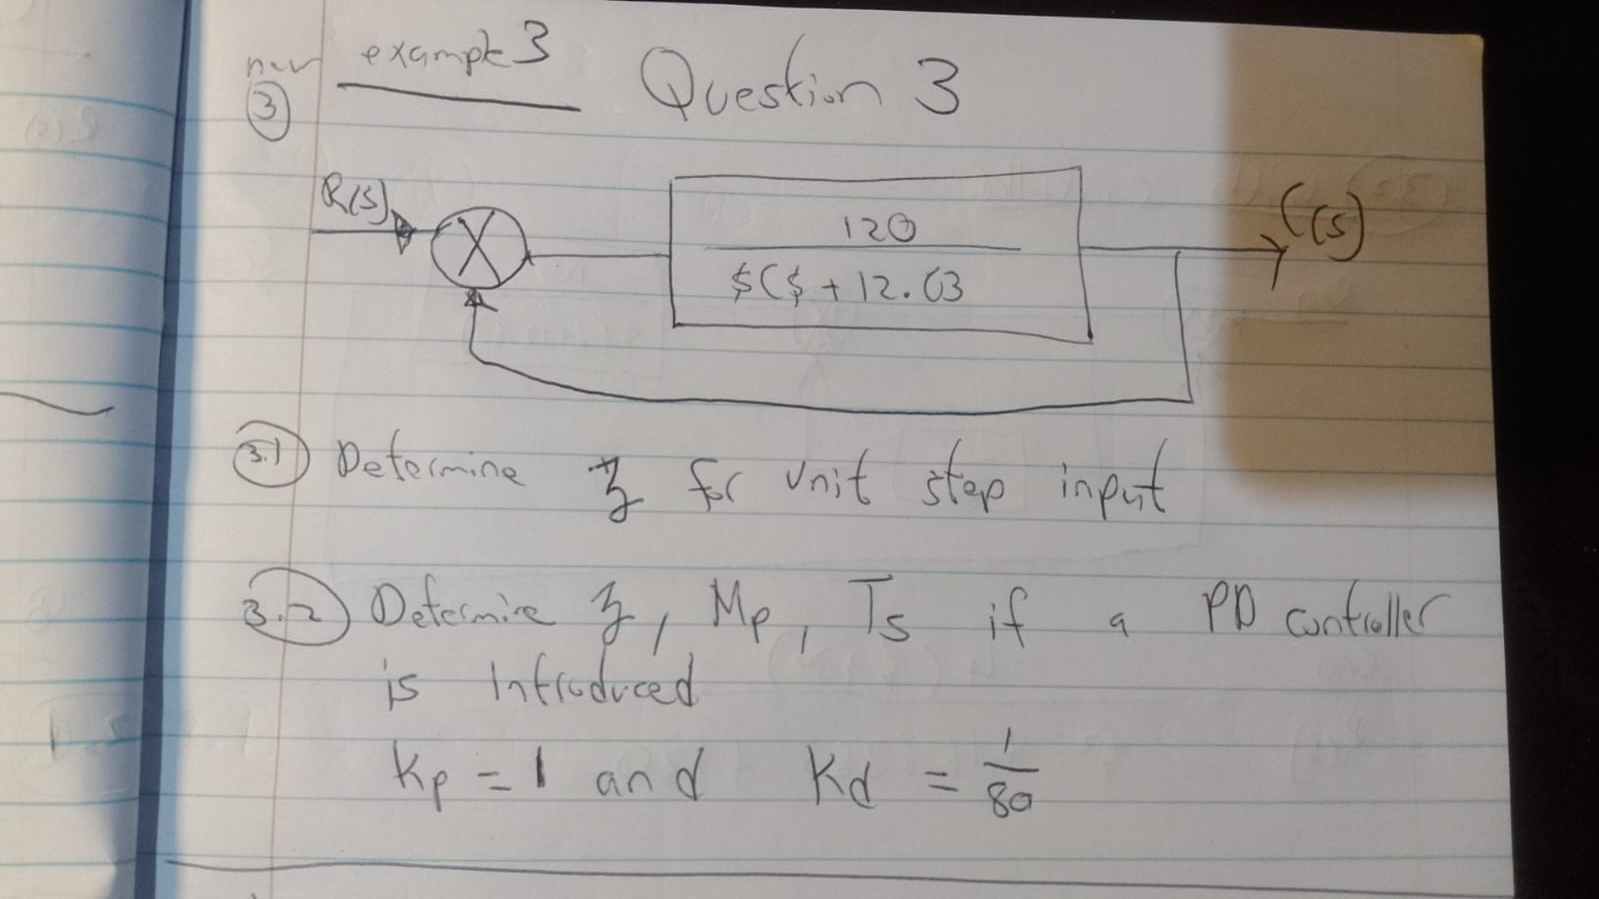 new example 3 Question 3
3
R(s)
120
C(s)
$($ + 12.63
3.1 Determine ξ for unit step input
3.2 Determine ξ, Mp, Ts if a PD controller
is Introduced
Kp = 1 and Kd = 1/80